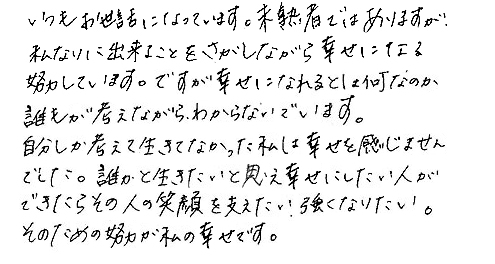 いつもお世話になっています。未熟者ではありますが、
私なりに出来ることをさがしながら幸せになる
努力しています。ですが幸せになれるとは何なのか
誰もが考えながら、わからないでいます。
自分しか考えて生きてなかった私は幸せを感じません
でした。誰かと生きたいと思え幸せにしたい人が
できたらその人の笑顔を支えたい、強くなりたい。
そのための努力が私の幸せです。